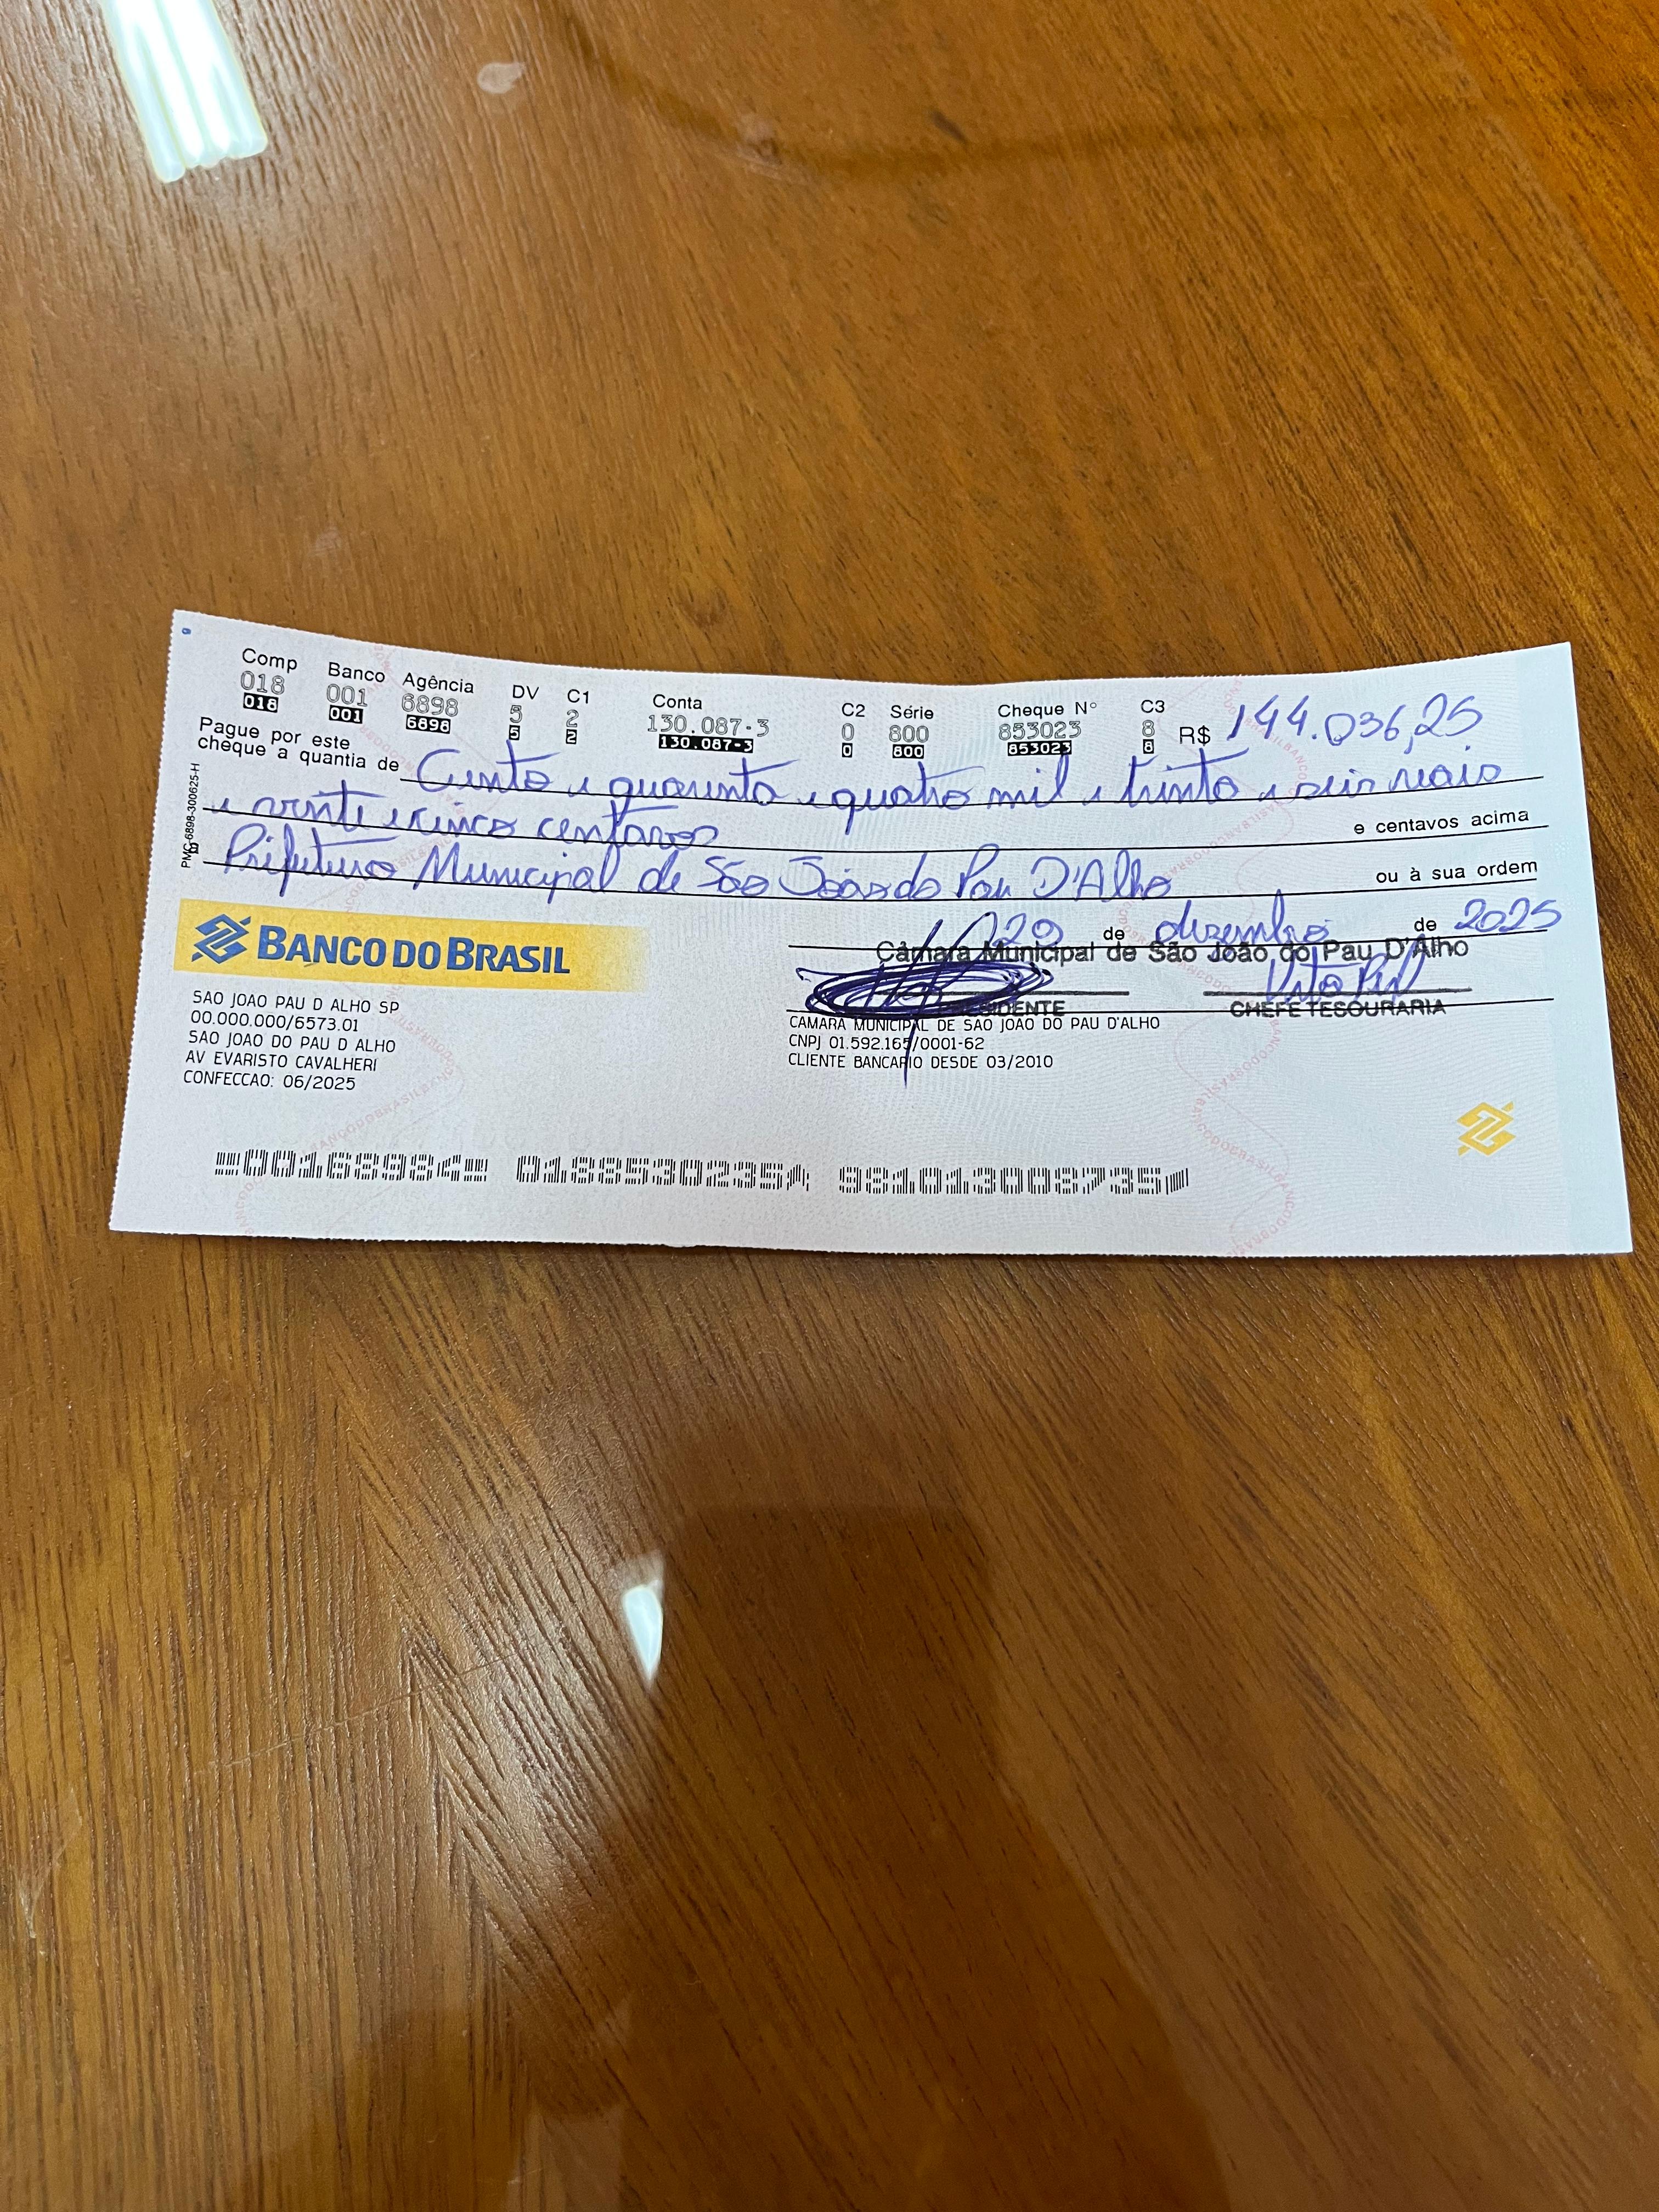 Comp Banco Agência DV C1 Conta C2 Série Cheque Nº C3
018 001 6898 5 2 130.087-3 0 800 853023 8 R$ 144.036,25
018 001 6898 5 2 130.087-3 0 800 853023 8
Pague por este
cheque a quantia de Cento e quarenta e quatro mil e trinta e seis reais
e vinte e cinco centavos e centavos acima
a Prefeitura Municipal de São João do Pau D'Alho ou à sua ordem
PMC-6898-300625-H
29 de dezembro de 2025
BANCO DO BRASIL
Câmara Municipal de São João do Pau D'Alho
PRESIDENTE CHEFE TESOURARIA
SAO JOAO PAU D ALHO SP
00.000.000/6573.01
SAO JOAO DO PAU D ALHO
AV EVARISTO CAVALHERI
CONFECCAO: 06/2025
CAMARA MUNICIPAL DE SAO JOAO DO PAU D'ALHO
CNPJ 01.592.165/0001-62
CLIENTE BANCARIO DESDE 03/2010
00168984 0188530235 981013008735